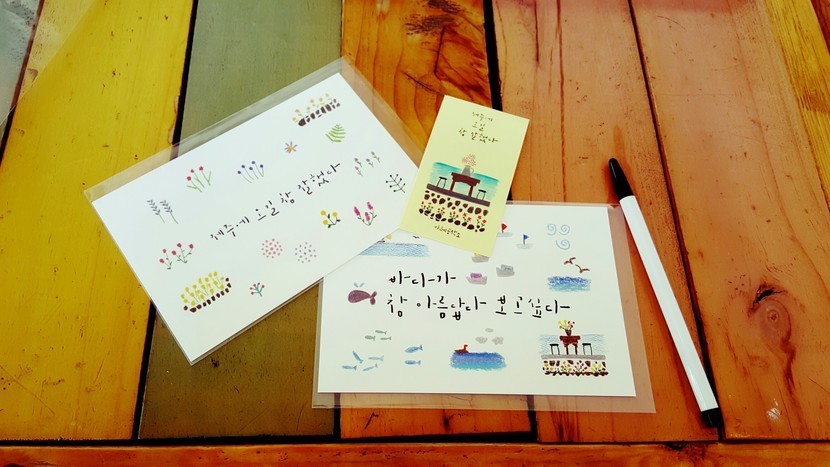 제주에 오길 참 잘했다
제주에
오길
참 잘했다
바다가
참 아름답다 보고싶다